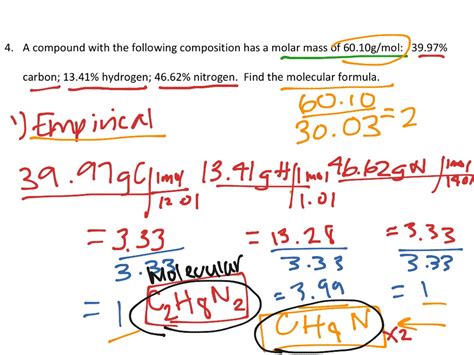 4. A compound with the following composition has a molar mass of 60.10g/mol: 39.97%
carbon; 13.41% hydrogen; 46.62% nitrogen. Find the molecular formula.
60.10
30.03 = 2
1) Empirical
39.97gC 1mol 13.41gH 1mol 46.62gN 1mol
12.01 1.01 14.01
= 3.33 = 13.28 = 3.33
3.33 3.33 3.33
Molecular
= 1 = 3.99 = 1
C2H8N2
CH4N x2